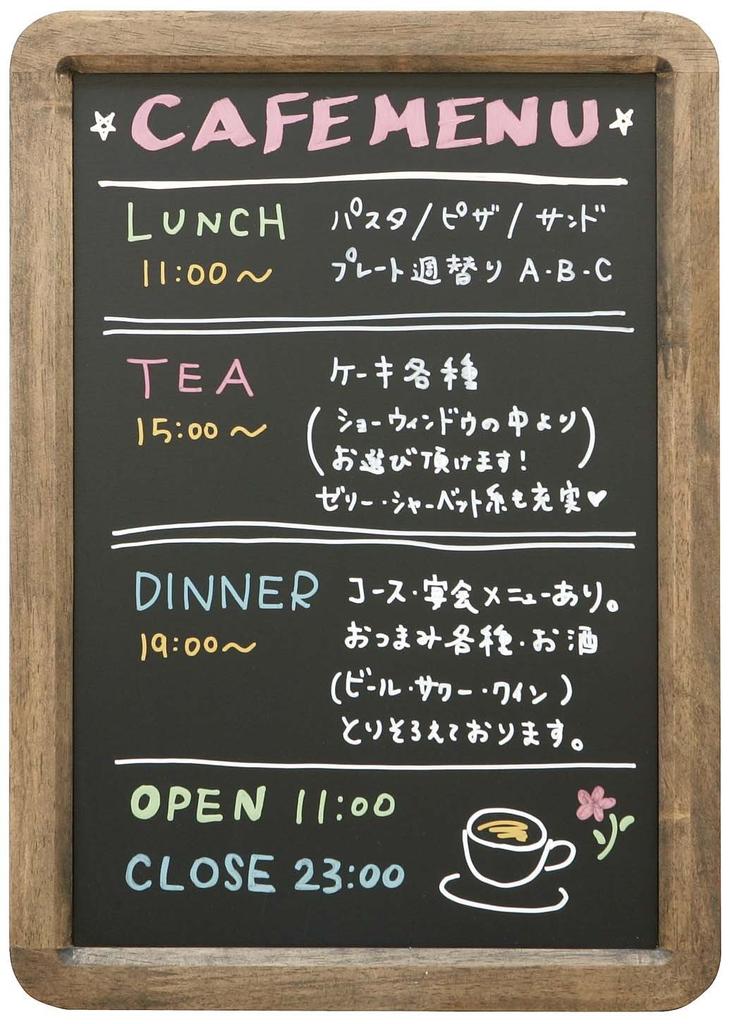 ☆CAFE MENU☆
LUNCH パスタ/ピザ/サンド
11:00～ プレート週替り A・B・C
TEA ケーキ各種
15:00～ (ショーウィンドウの中より
お選び頂けます!)
ゼリー・シャーベット系も充実♥
DINNER コース・宴会メニューあり。
19:00～ おつまみ各種・お酒
(ビール・サワー・ワイン)
とりそろえております。
OPEN 11:00
CLOSE 23:00